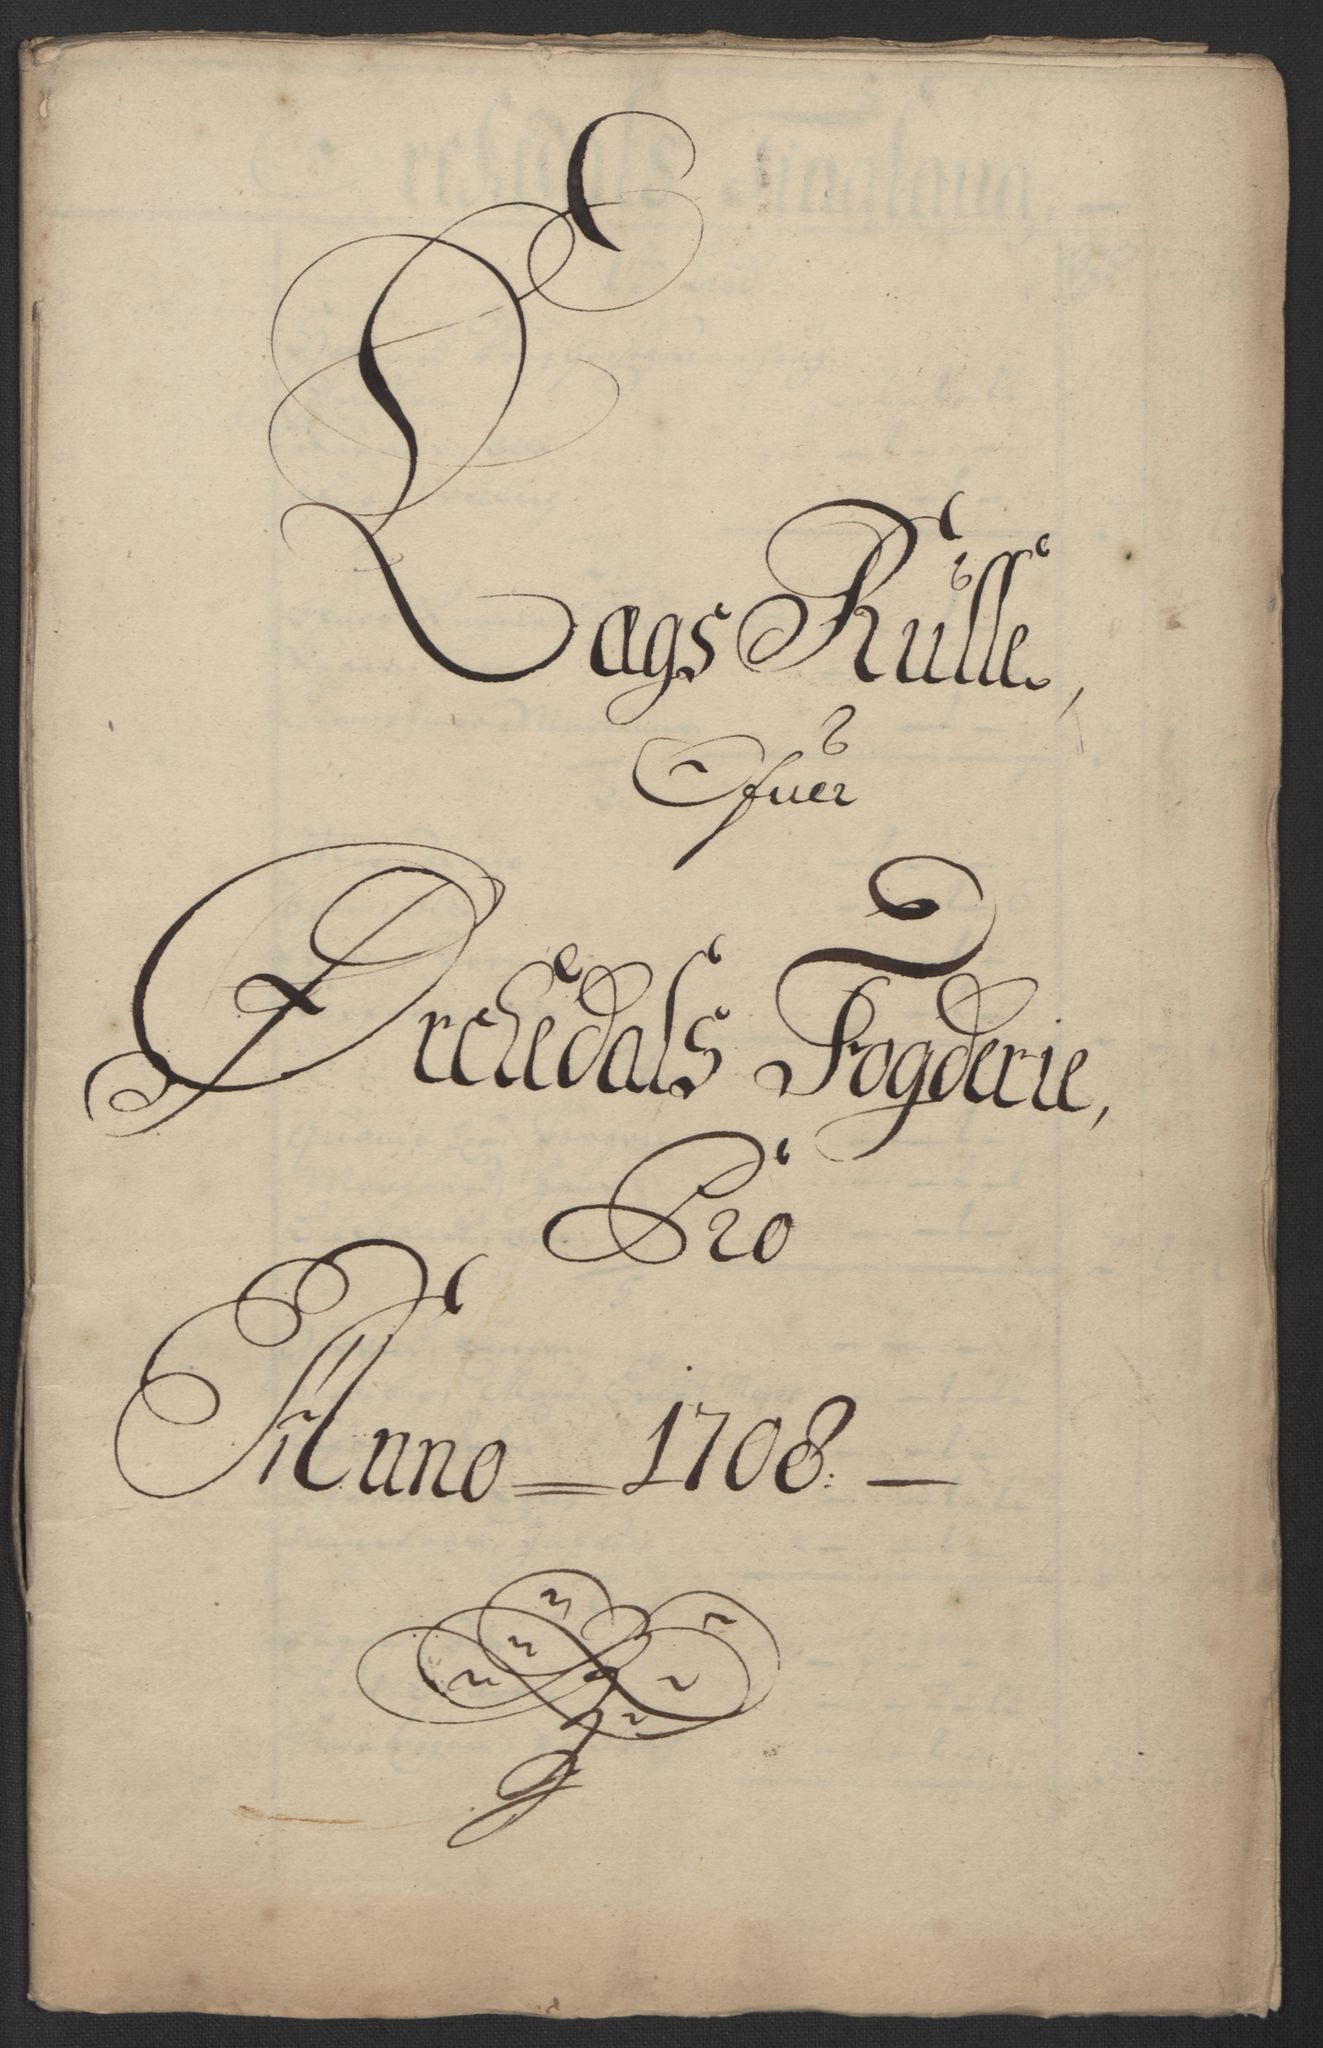 Lags Rulle,
Ofuer
Orchedals Fogderie,
Pro
Anno 1708.